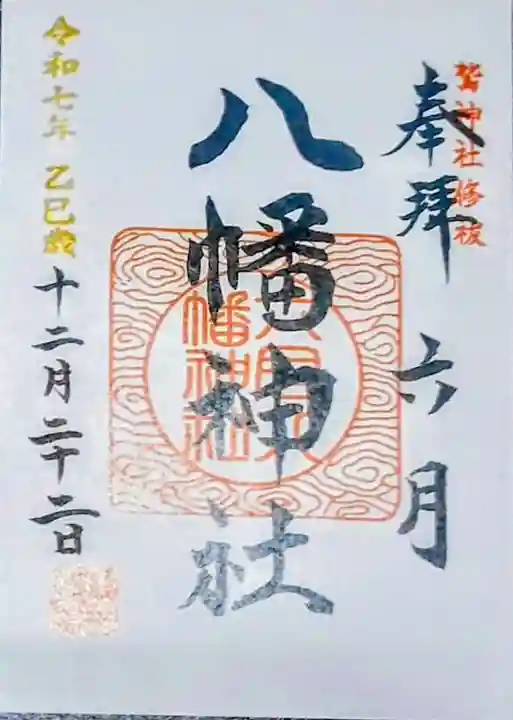 鷲神社修祓
奉拝 六月
八幡神社
六月八幡神社
令和七年 乙巳歳
十二月二十二日